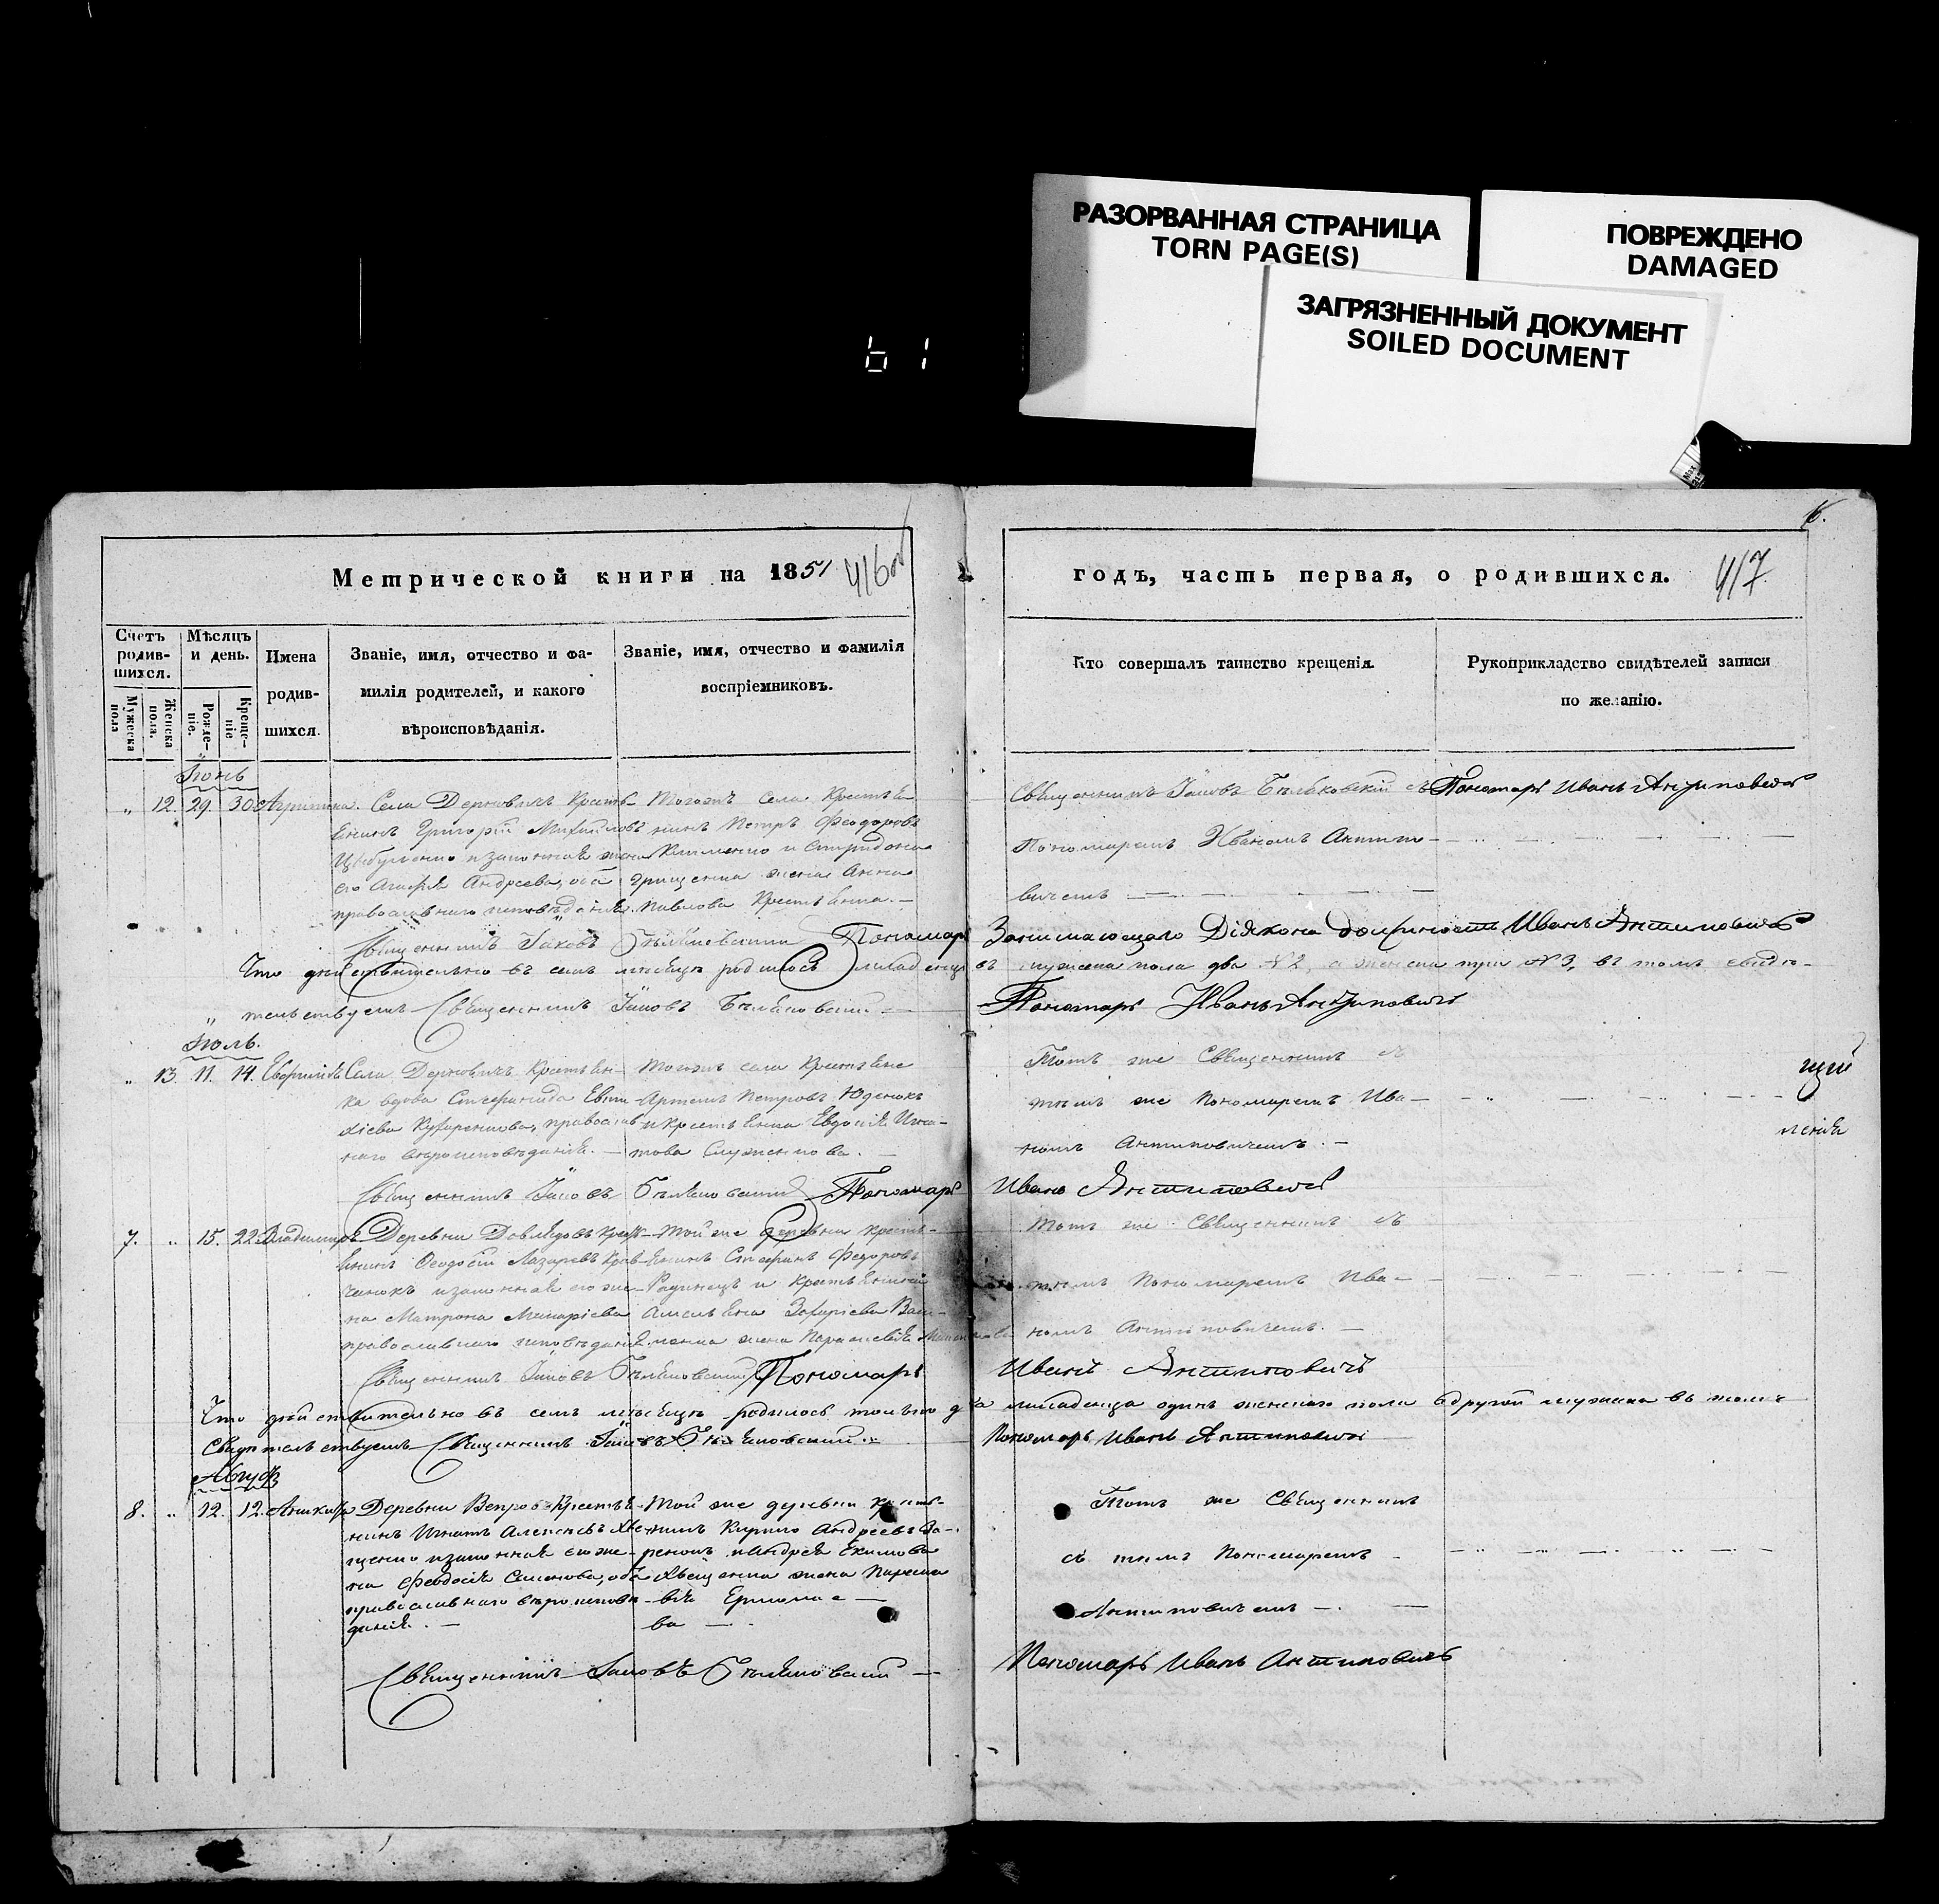 РАЗОРВАННАЯ СТРАНИЦА
TORN PAGE(S)
ПОВРЕЖДЕНО
DAMAGED
ЗАГРЯЗНЕННЫЙ ДОКУМЕНТ
SOILED DOCUMENT
61
Метрической книги на 1851
416об
годъ, часть первая, о родившихся.
417
6.
Счетъ родив-шихся.
Мужеска пола
Женска пола.
Мѣсяцъ и день.
Рожде-ніе.
Креще-ніе
Имена
родив-
шихся.
Званіе, имя, отчество и фа-
милія родителей, и какого
вѣроисповѣданія.
Званіе, имя, отчество и фамилія
воспріемниковъ.
Кто совершалъ таинство крещенія.
Рукоприкладство свидѣтелей записи
по желанію.
Іюнь
12. 29. 30 Агрипина. Села Дерновичъ Кресть-
янинъ Григорій Михайловъ
Цыбуленко и законная жена
его Агафія Андреева, оба
православнаго исповѣданія.
Тогожъ села Крестья
нинъ Петръ Феодоровъ
и Спиридона
Грищенка жена Анна
Павлова Крестьянка.
Священникъ Іаковъ съ
Пономаремъ Иваномъ Антипо-
вичемъ
Пономарь Иванъ Антиповичъ
Священникъ Іаковъ Пономарь
Занимающаго Діякона должность Иванъ Антиповичъ
Что дѣйствительно въ семъ мѣсяцѣ родилось младенцевъ мужеска пола два №2, а женска три №3, въ томъ свидѣ-
тельствуемъ Священникъ Іаковъ
Пономарь Иванъ Антиповичъ
Іюль.
13 11. 14. Евфимія Села Дерновичъ Крестьян-
ка вдова Стефанида Евти-
хіева Кухаренкова, православ-
наго вѣроисповѣданія.
Тогожъ села Крестьяне
Артемъ Петровъ Юденокъ
и Крестьянка Евдокія Игна-
това
Тотъ же Священникъ съ
тѣмъ же Пономаремъ Ива-
номъ Антиповичемъ.
щій
ленія
Священникъ Іаковъ Пономарь
Иванъ Антиповичъ
7. 15. 22 Владимиръ Деревни Довлядовъ Крест-
янинъ Феодосій Лазаревъ Крав-
ченокъ и законная его же-
на Матрона Макаріева
православнаго исповѣданія
Той же деревни Кресть-
янинъ Стефанъ Федоровъ
Радинецъ и Крестьянина
Емельяна Захаріева
жена Параскевія
Тотъ же Священникъ съ
тѣмъ Пономаремъ Ива-
номъ Антиповичемъ.
Священникъ Іаковъ Пономарь
Иванъ Антиповичъ
Что дѣйствительно въ семъ мѣсяцѣ родилось только два младенца одинъ женскаго пола а другой мужска въ томъ
свидѣтельствуемъ Священникъ Іаковъ
Пономарь Иванъ Антиповичъ
Августъ
8. 12. 12. Аникита Деревни Вепровъ Крестья-
нинъ Игнатъ Алексѣевъ Хве-
щенко и законная его же-
на Феодосія Семенова, оба
православнаго вѣроисповѣ-
данія.
Той же деревни Кресть-
янинъ Кирило Андреевъ
и Андрея Екимова
Хвещенка жена Параске-
вія Ермолае-
ва
Тотъ же Священникъ
съ тѣмъ Пономаремъ
Антиповичемъ
Священникъ Іаковъ
Пономарь Иванъ Антиповичъ